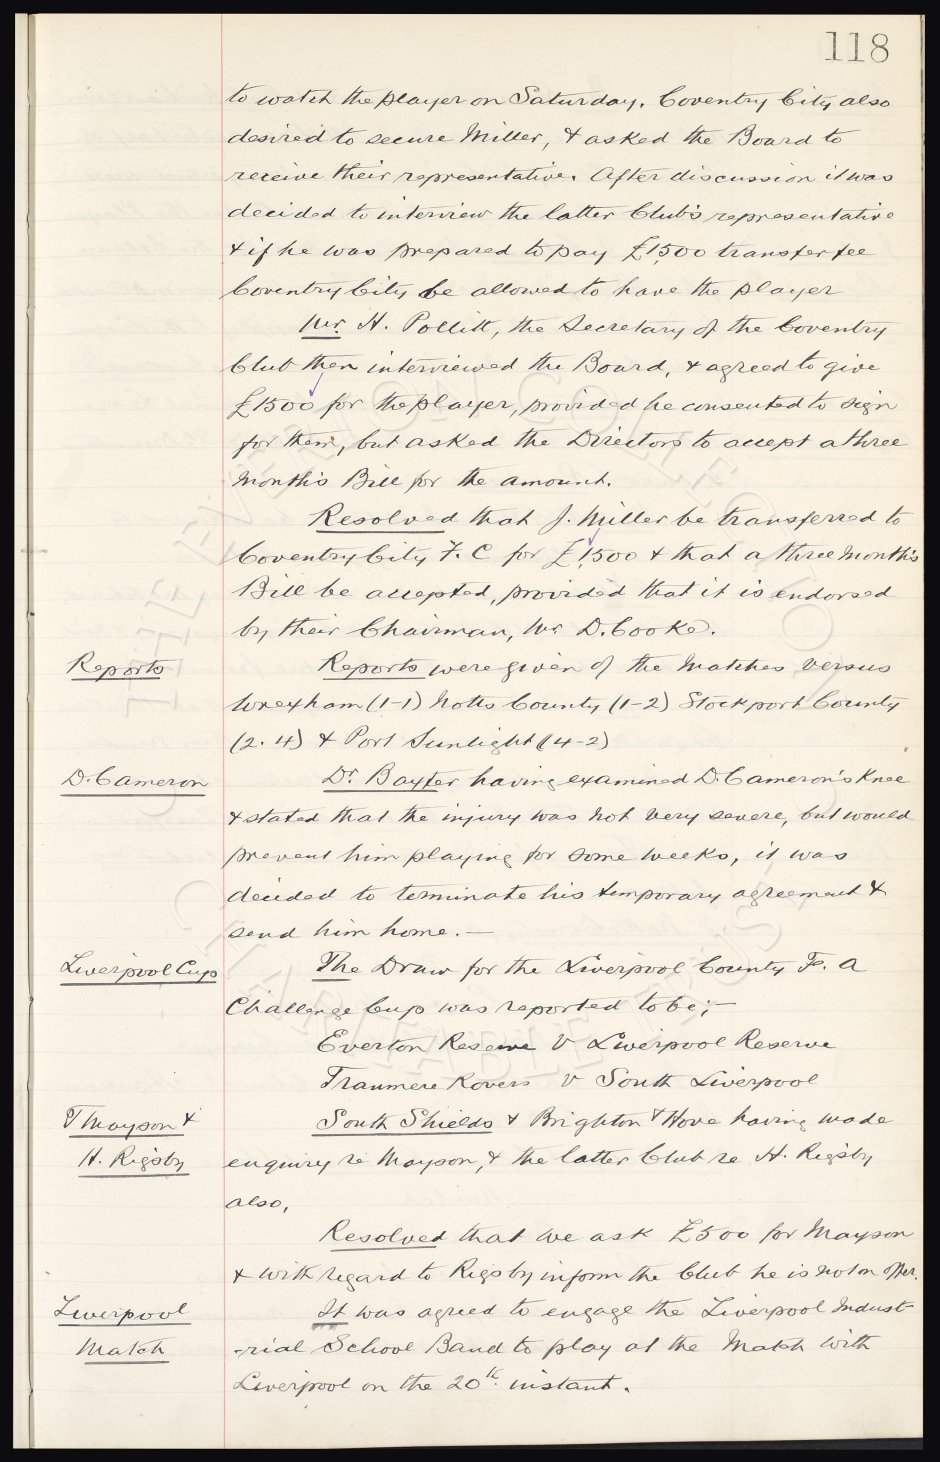 118
to watch the player on Saturday. Coventry City also
desired to secure Miller, & asked the Board to
receive their representative. After discussion it was
decided to interview the latter Club's representative
& if he was prepared to pay £1500 transfer fee
Coventry City be allowed to have the player
Mr. H. Pollitt, the Secretary of the Coventry
Club then interviewed the Board, & agreed to give
£1500 for the player, provided he consented to sign
for them, but asked the Directors to accept a three
month's Bill for the amount.
Resolved that J. Miller be transferred to
Coventry City F. C for £1500 & that a three month's
Bill be accepted, provided that it is endorsed
by their Chairman, Mr D. Cooke.
Reports
Reports were given of the Matches versus
Wrexham (1-1) Notts County (1-2) Stockport County
(2.4) & Port Sunlight (4-2)
D. Cameron
Dr. Baxter having examined D. Cameron's Knee
& stated that the injury was not very severe, but would
prevent him playing for some weeks, it was
decided to terminate his temporary agreement &
send him home. —
Liverpool Cup
The Draw for the Liverpool County F. A
Challenge Cup was reported to be;—
Everton Reserve V Liverpool Reserve
Tranmere Rovers V South Liverpool
T Mayson &
H. Rigsby
South Shields & Brighton & Hove having made
enquiry re Mayson, & the latter Club re H. Rigsby
also,
Resolved that we ask £500 for Mayson
& with regard to Rigsby inform the Club he is not on offer.
Liverpool
Match
It was agreed to engage the Liverpool Indust-
-rial School Band to play at the Match with
Liverpool on the 20th. instant.